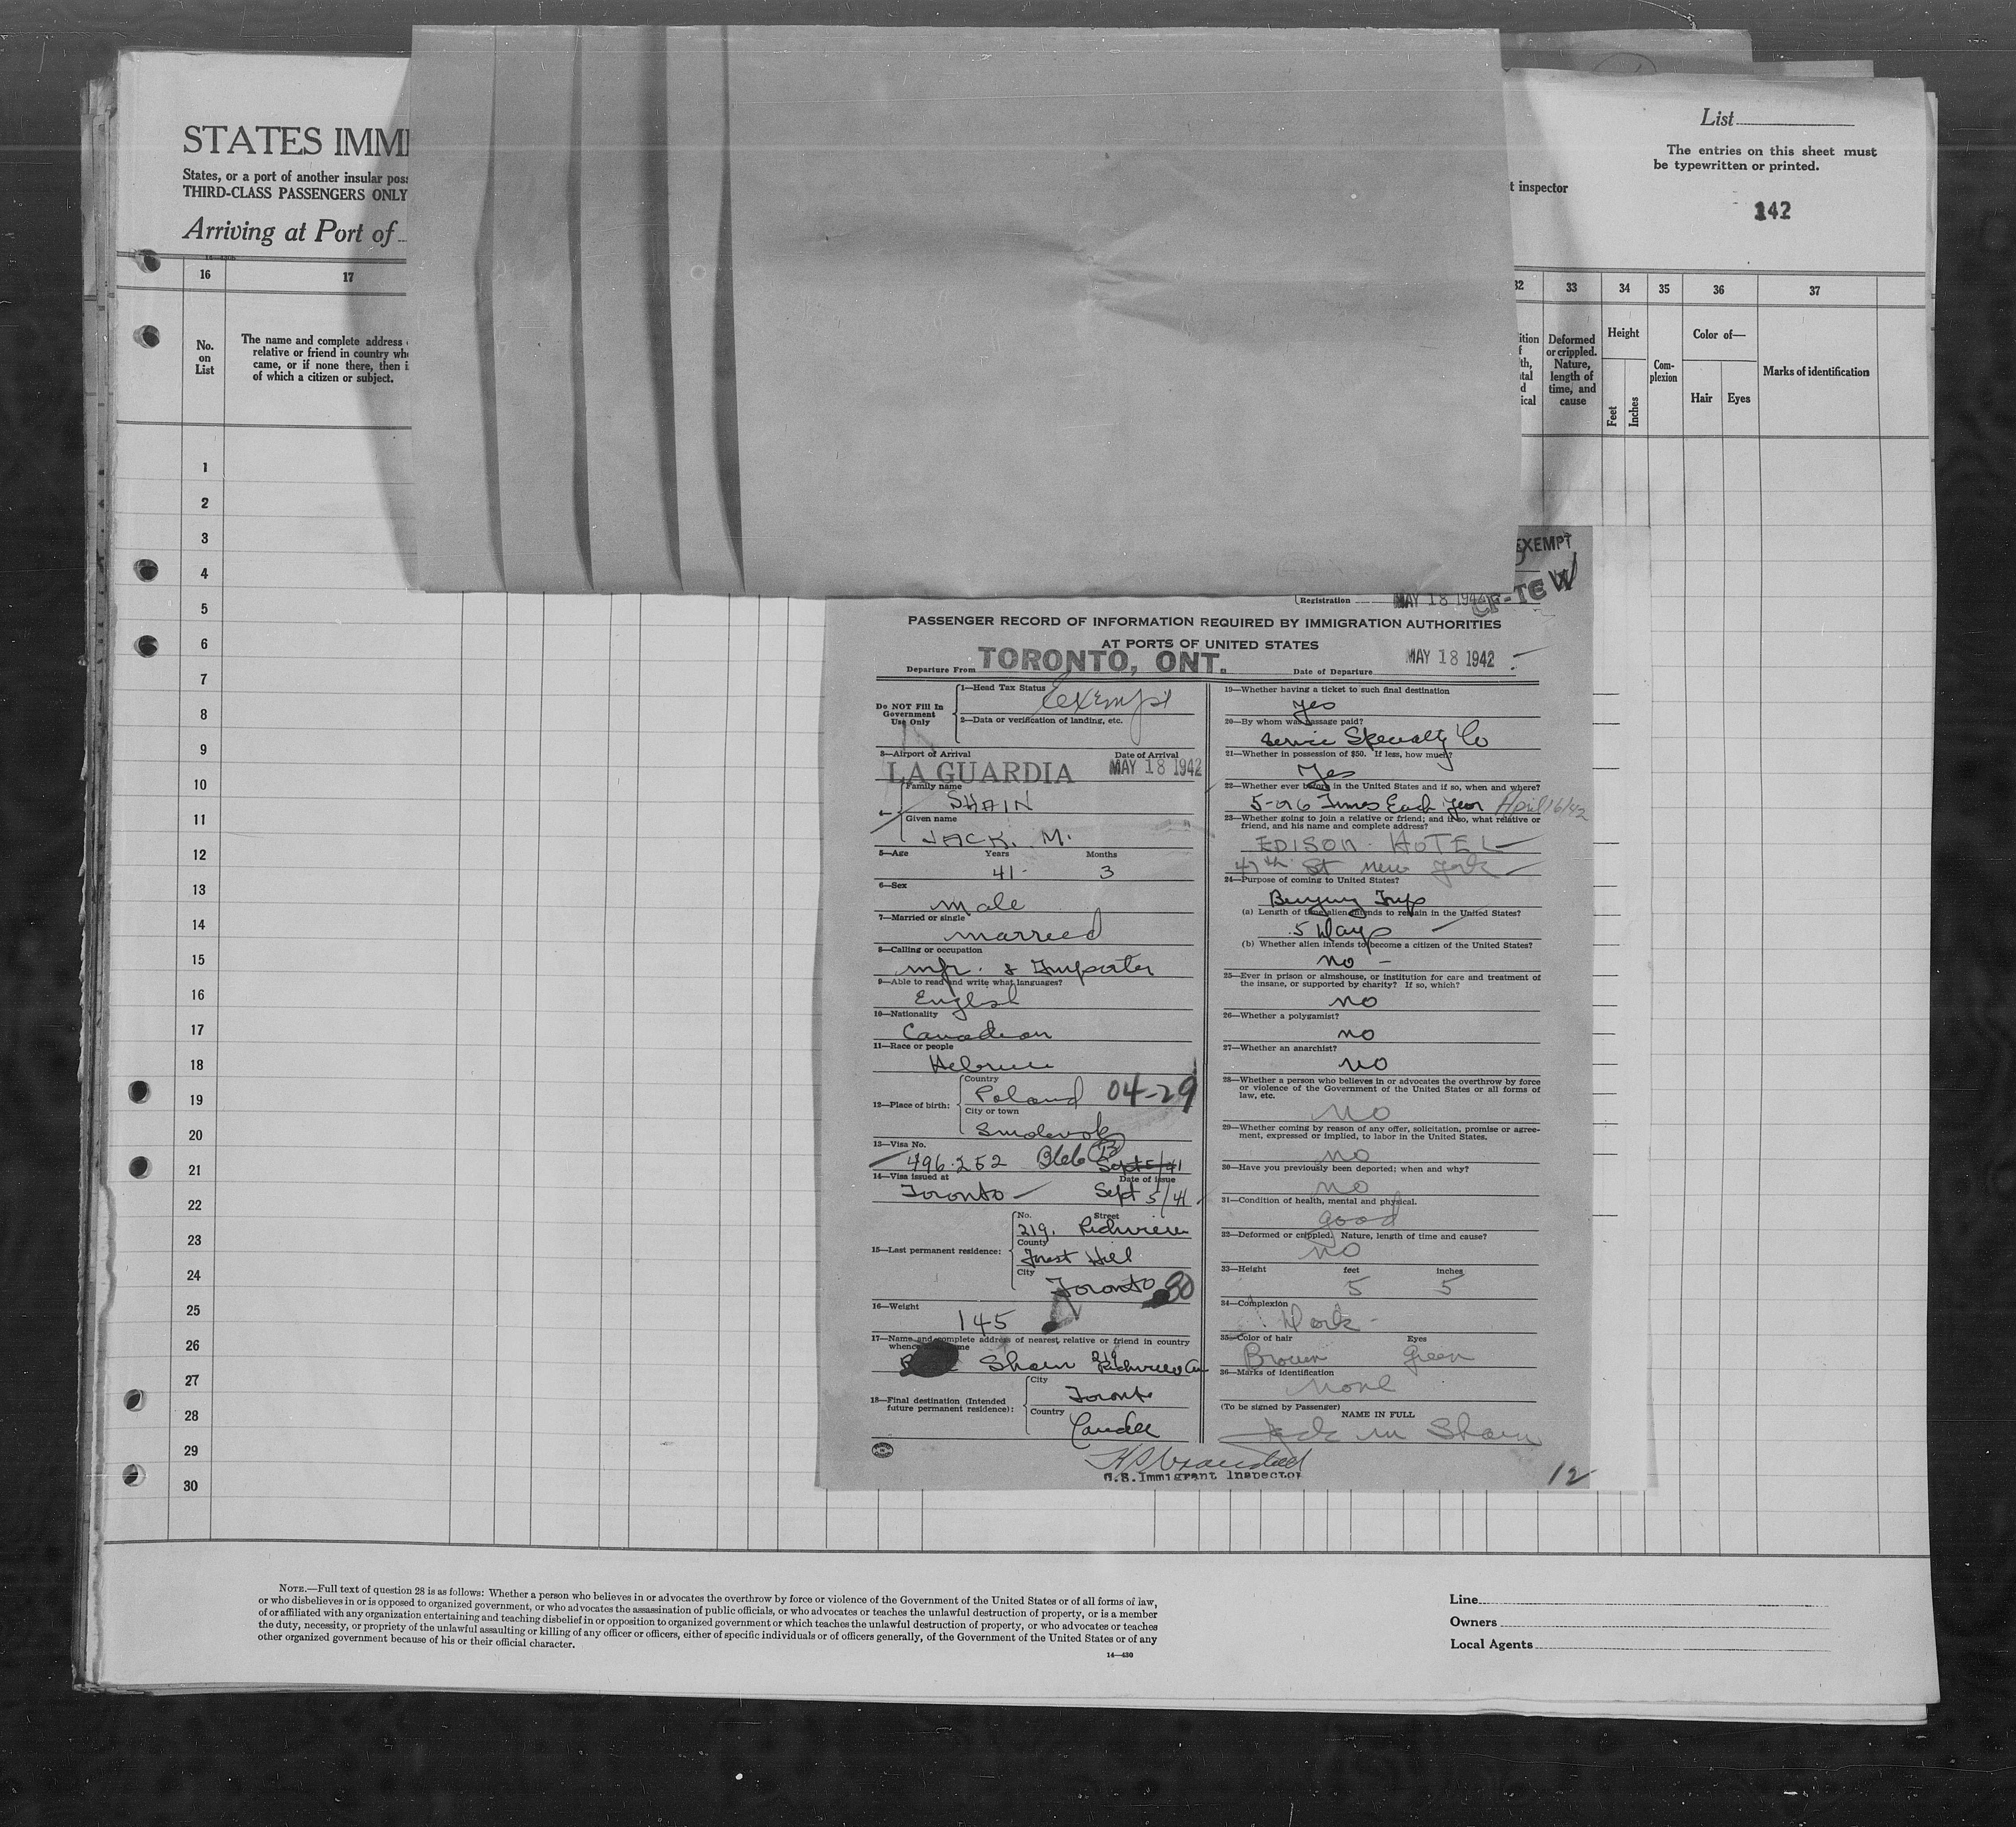 STATES IMMI
States, or a port of another insular poss
THIRD-CLASS PASSENGERS ONLY
Arriving at Port of
t inspector
List
The entries on this sheet must
be typewritten or printed.
142
16 17 32 33 34 35 36 37
No.
on
List
The name and complete address
relative or friend in country wh
came, or if none there, then i
of which a citizen or subject.
ition
f
th,
tal
d
ical
Deformed
or crippled.
Nature,
length of
time, and
cause
Height
Feet Inches
Com-
plexion
Color of—
Hair Eyes
Marks of identification
1
2
3
4
5
6
7
8
9
10
11
12
13
14
15
16
17
18
19
20
21
22
23
24
25
26
27
28
29
30
EXEMPT
Registration MAY 18 1942
PASSENGER RECORD OF INFORMATION REQUIRED BY IMMIGRATION AUTHORITIES
AT PORTS OF UNITED STATES
Departure From TORONTO, ONT. Date of Departure MAY 18 1942
Do NOT Fill In
Government
Use Only
1—Head Tax Status Exempt
2—Data or verification of landing, etc.
3—Airport of Arrival Date of Arrival
LA GUARDIA MAY 18 1942
Family name
SHAIN
Given name
JACK. M.
5—Age Years Months
41 3
6—Sex
male
7—Married or single
married
8—Calling or occupation
mfr. & Importer
9—Able to read and write what languages?
English
10—Nationality
Canadian
11—Race or people
Hebrew
12—Place of birth:
Country
Poland 04-29
City or town
13—Visa No.
496252 Sept 5/41
14—Visa issued at Date of issue
Toronto Sept 5/41
15—Last permanent residence:
No. Street
219. Richview
County
Forest Hill
City
Toronto
16—Weight
145
17—Name and complete address of nearest relative or friend in country
whence
Shain 219 Richview Av
18—Final destination (Intended
future permanent residence):
City
Toronto
Country
Canada
U.S. Immigrant Inspector
19—Whether having a ticket to such final destination
yes
20—By whom was passage paid?
Service Specialty Co
21—Whether in possession of $50. If less, how much?
Yes
22—Whether ever before in the United States and if so, when and where?
5-or 6 Times Each Year April 16/42
23—Whether going to join a relative or friend; and if so, what relative or
friend, and his name and complete address?
EDISON HOTEL
47th St New York
24—Purpose of coming to United States?
Buying Trip
(a) Length of time alien intends to remain in the United States?
5 Days
(b) Whether alien intends to become a citizen of the United States?
no
25—Ever in prison or almshouse, or institution for care and treatment of
the insane, or supported by charity? If so, which?
no
26—Whether a polygamist?
no
27—Whether an anarchist?
no
28—Whether a person who believes in or advocates the overthrow by force
or violence of the Government of the United States or all forms of
law, etc.
no
29—Whether coming by reason of any offer, solicitation, promise or agree-
ment, expressed or implied, to labor in the United States.
no
30—Have you previously been deported; when and why?
no
31—Condition of health, mental and physical.
good
32—Deformed or crippled. Nature, length of time and cause?
no
33—Height feet inches
5 5
34—Complexion
Dark
35—Color of hair Eyes
Brown Green
36—Marks of identification
none
(To be signed by Passenger)
NAME IN FULL
Jack M Shain
12
NOTE.—Full text of question 28 is as follows: Whether a person who believes in or advocates the overthrow by force or violence of the Government of the United States or of all forms of law,
or who disbelieves in or is opposed to organized government, or who advocates the assassination of public officials, or who advocates or teaches the unlawful destruction of property, or is a member
of or affiliated with any organization entertaining and teaching disbelief in or opposition to organized government or which teaches the unlawful destruction of property, or who advocates or teaches
the duty, necessity, or propriety of the unlawful assaulting or killing of any officer or officers, either of specific individuals or of officers generally, of the Government of the United States or of any
other organized government because of his or their official character.
14—430
Line
Owners
Local Agents